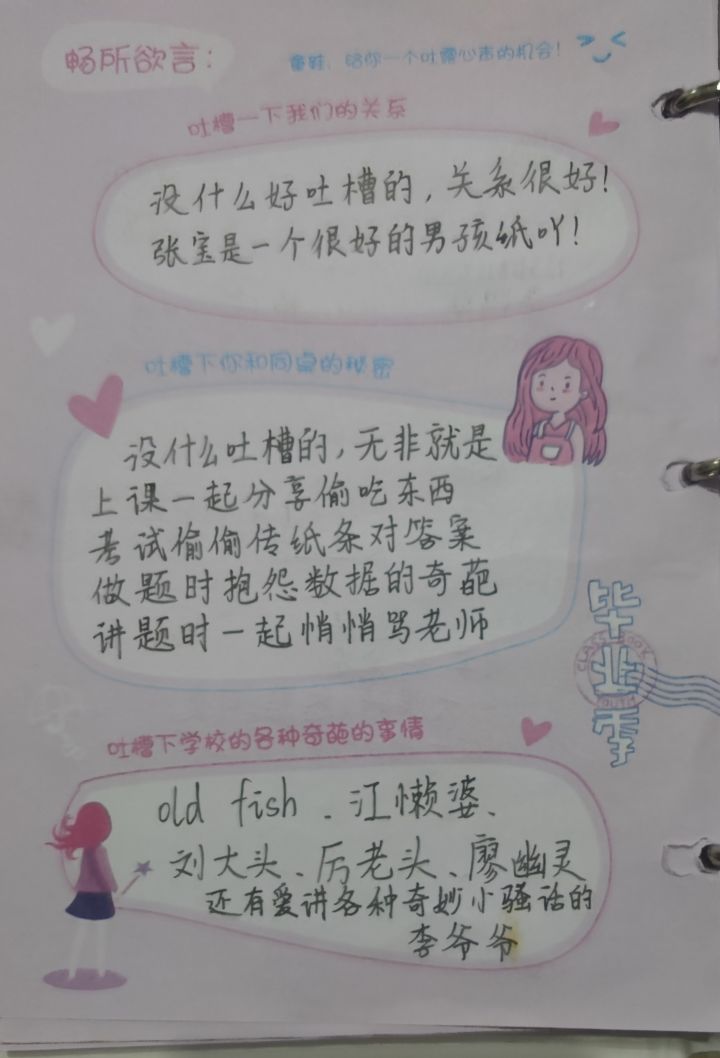 畅所欲言：
童鞋，给你一个吐露心声的机会！
吐槽一下我们的关系
没什么好吐槽的，关系很好！
张宝是一个很好的男孩纸吖！
吐槽下你和同桌的秘密
没什么吐槽的，无非就是
上课一起分享偷吃东西
考试偷偷传纸条对答案
做题时抱怨数据的奇葩
讲题时一起悄悄骂老师
毕业季
CLASS BOOK
YOUTH
吐槽下学校的各种奇葩的事情
old fish、江懒婆、
刘大头、厉老头、廖幽灵
还有爱讲各种奇妙小骚话的
李爷爷